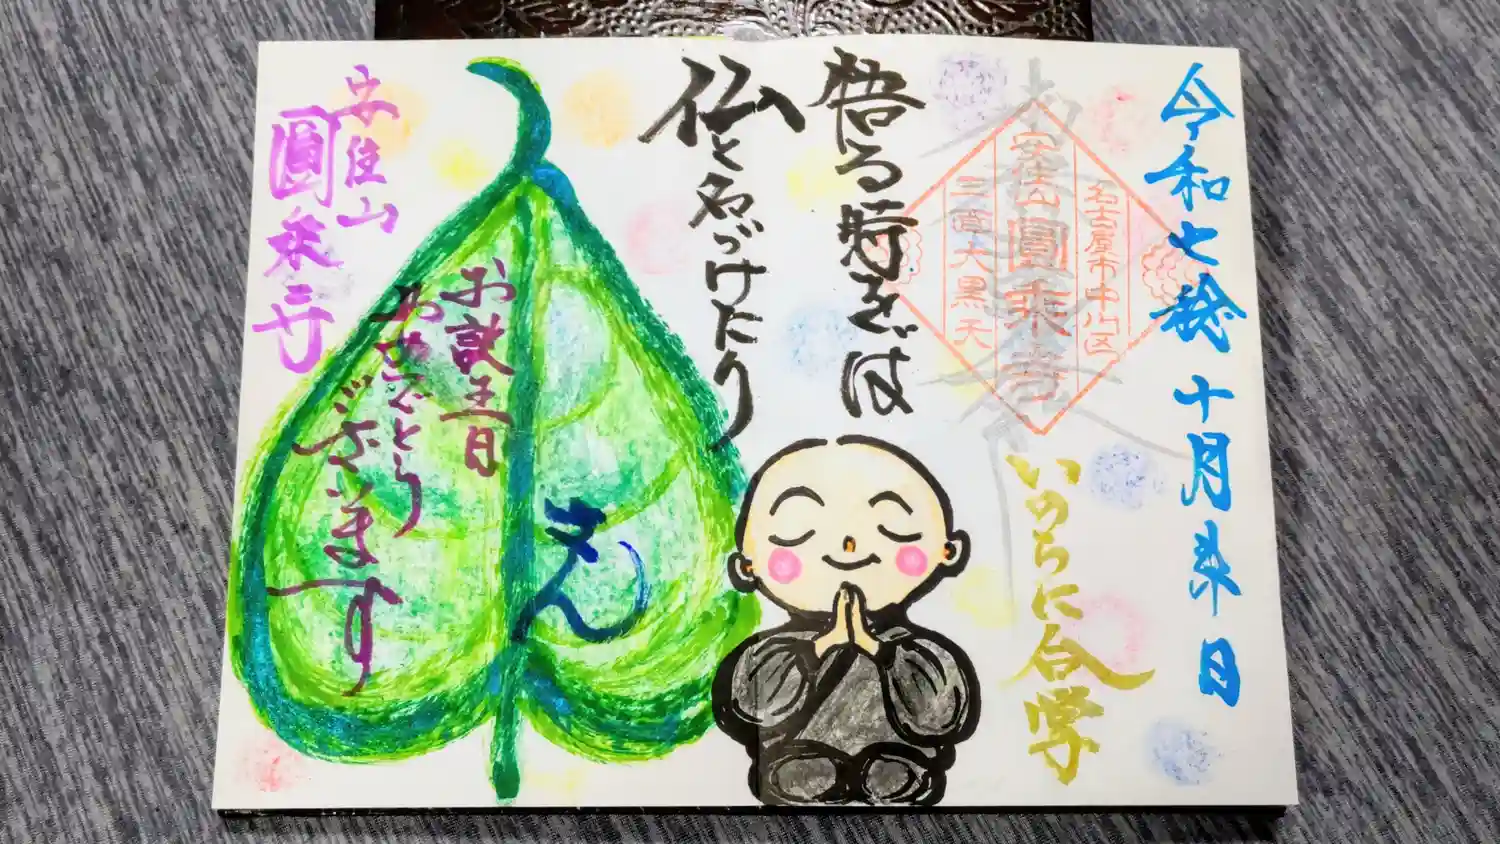 令和七稔 十月 日
名古屋市中川区
安住山圓乗寺
三面大黒天
いのちに合掌
悟る時をば
仏と名づけたり
さん
お誕生日
おめでとう
ございます
安住山
圓乗寺